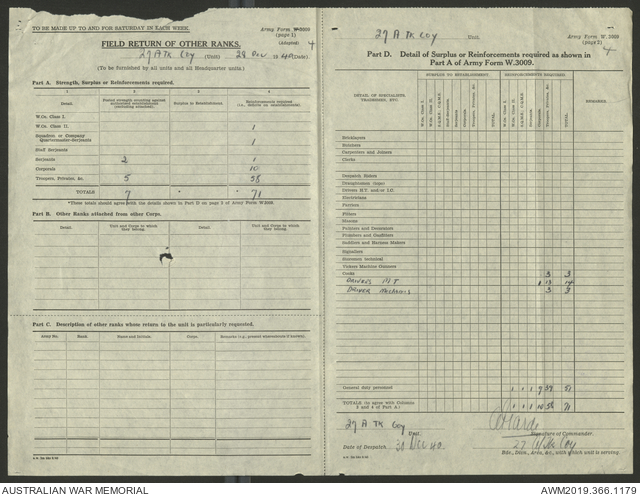 TO BE MADE UP TO AND FOR SATURDAY IN EACH WEEK.
Army Form W.3009
(page 1)
FIELD RETURN OF OTHER RANKS.
(Adapted) 4
27 A TK COY (Unit) 28 Dec 1940 (Date)
(To be furnished by all units and all Headquarter units.)
Part A. Strength, Surplus or Reinforcements required.
1 2 3 4
Detail. Surplus to Establishment. Reinforcements required
W.Os. Class I.
W.Os. Class II. 1
Squadron or Company
Quartermaster-Serjeants 1
Staff Serjeants
Serjeants 2 1
Corporals 10
Troopers, Privates, &c. 5 58
TOTALS 7 * * 71
*These totals should agree with the details shown in Part D on page 2 of Army Form W.3009.
Part B. Other Ranks attached from other Corps.
Detail. Unit and Corps to which they belong. Detail. Unit and Corps to which they belong.
Part C. Description of other ranks whose return to the unit is particularly requested.
Army No. Rank Name and Initials. Corps. Remarks (e.g., present whereabouts if known).
27 A TK COY Unit.
Army Form W. 3009
(page 2)
4
Part D. Detail of Surplus or Reinforcements required as shown in
Part A of Army Form W.3009.
DETAIL OF SPECIALISTS, TRADESMEN, ETC.
SURPLUS TO ESTABLISHMENT. REINFORCEMENTS REQUIRED
W.Os. Class I. W.Os. Class II. Staff-Serjeants. Serjeants. Corporals. Troopers, Privates, &c. TOTAL.
REMARKS.
Bricklayers
Butchers
Carpenters and Joiners
Clerks
Despatch Riders
Draughtsmen (topo)
Drivers H.T. and/or I.C.
Electricians
Farriers
Fitters
Masons
Painters and Decorators
Plumbers and Gasfitters
Saddlers and Harness Makers
Signallers
Storemen technical
Vickers Machine Gunners
Cooks 3 3
DRIVERS MT 1 13 14
DRIVER MECHANICS 3 3
General duty personnel 1 1 1 9 39 51
TOTALS (to agree with Columns
3 and 4 of Part A) 1 1 1 10 58 71
27 A TK COY
Unit.
Signature of Commander.
Date of Despatch 28 Dec 40
27 A TK Coy
Bde., Divn., Area, &c., with which unit is serving.
AUSTRALIAN WAR MEMORIAL
AWM2019.366.1179